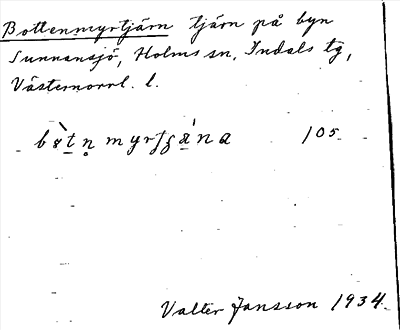 Bottenmyrtjärn tjärn på byn
Sunnansjö, Holms sn, Indals tg,
Västernorrl. l.
105
Valter Jansson 1934.